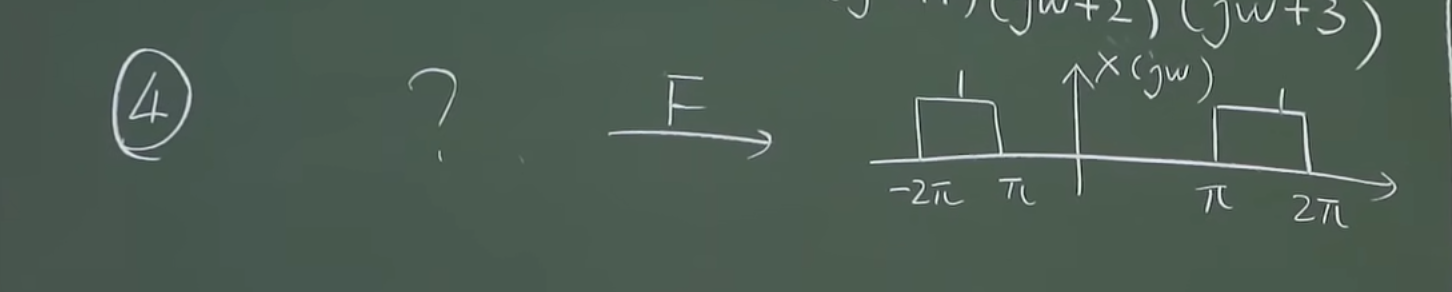 (jw+2)(jw+3)
④ ? F X(jw)
1 1
-2π π π 2π